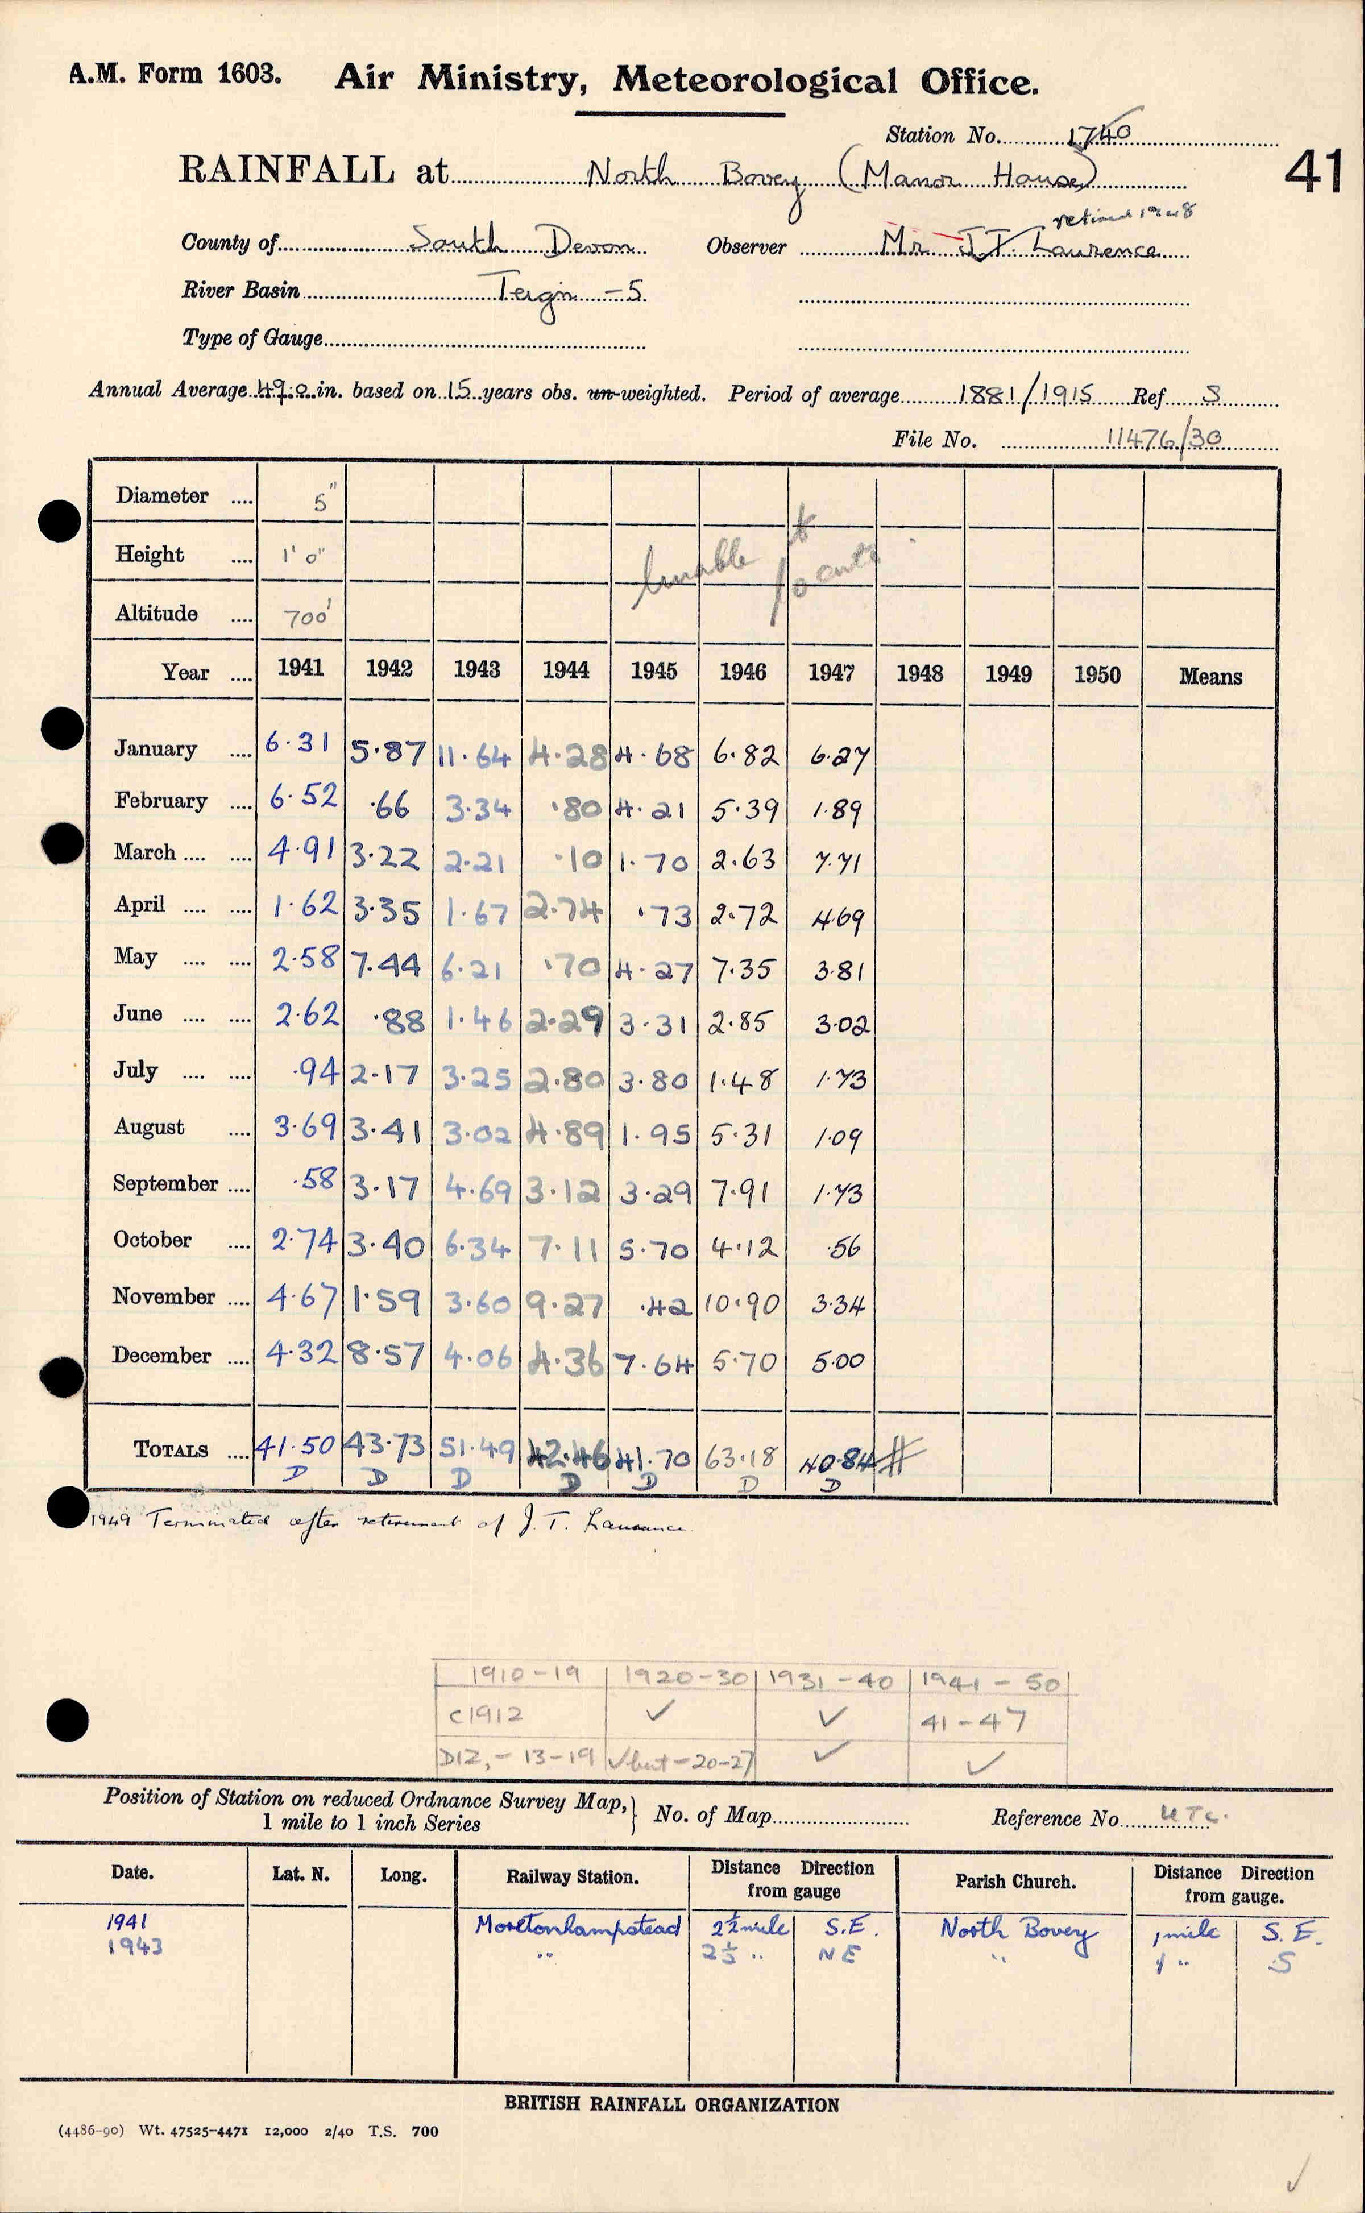 A.M. Form 1603. Air Ministry, Meteorological Office.
Station No. 1740
41
RAINFALL at North Bovey (Manor House)
retired 1948
County of South Devon Observer Mr. J.T. Laurence
River Basin Teign - 5
Type of Gauge
Annual Average 49.0 in. based on 15 years obs. un-weighted. Period of average 1881/1915 Ref S
File No. 11476/30
Diameter .... 5"
Height .... 1' 0" Unable to locate
Altitude .... 700'
Year .... 1941 1942 1943 1944 1945 1946 1947 1948 1949 1950 Means
January .... 6.31 5.87 11.64 4.28 4.68 6.82 6.27
February .... 6.52 .66 3.34 .80 4.21 5.39 1.89
March .... .... 4.91 3.22 2.21 .10 1.70 2.63 7.71
April .... .... 1.62 3.35 1.67 2.74 .73 2.72 4.69
May .... .... 2.58 7.44 6.21 .70 4.27 7.35 3.81
June .... .... 2.62 .88 1.46 2.29 3.31 2.85 3.02
July .... .... .94 2.17 3.25 2.80 3.80 1.48 1.73
August .... 3.69 3.41 3.02 4.89 1.95 5.31 1.09
September .... .58 3.17 4.69 3.12 3.29 7.91 1.73
October .... 2.74 3.40 6.34 7.11 5.70 4.12 .56
November .... 4.67 1.59 3.60 9.27 .42 10.90 3.34
December .... 4.32 8.57 4.06 4.36 7.64 5.70 5.00
TOTALS .... 41.50 43.73 51.49 42.46 41.70 63.18 40.84 #
D D D D D D D
1949 Terminated after retirement of J. T. Laurence.
1910-19 1920-30 1931-40 1941-50
c1912 ✓ ✓ 41-47
D12,- 13-19 ✓but-20-27 ✓ ✓
Position of Station on reduced Ordnance Survey Map,} No. of Map Reference No.
1 mile to 1 inch Series
Date. Lat. N. Long. Railway Station. Distance Direction from gauge Parish Church. Distance Direction from gauge.
1941 Moretonhampstead 2½ mile S.E. North Bovey 1 mile S.E.
1943 " 2½ " NE " 1 " S
BRITISH RAINFALL ORGANIZATION
(4486-90) Wt. 47525-4471 12,000 2/40 T.S. 700
✓